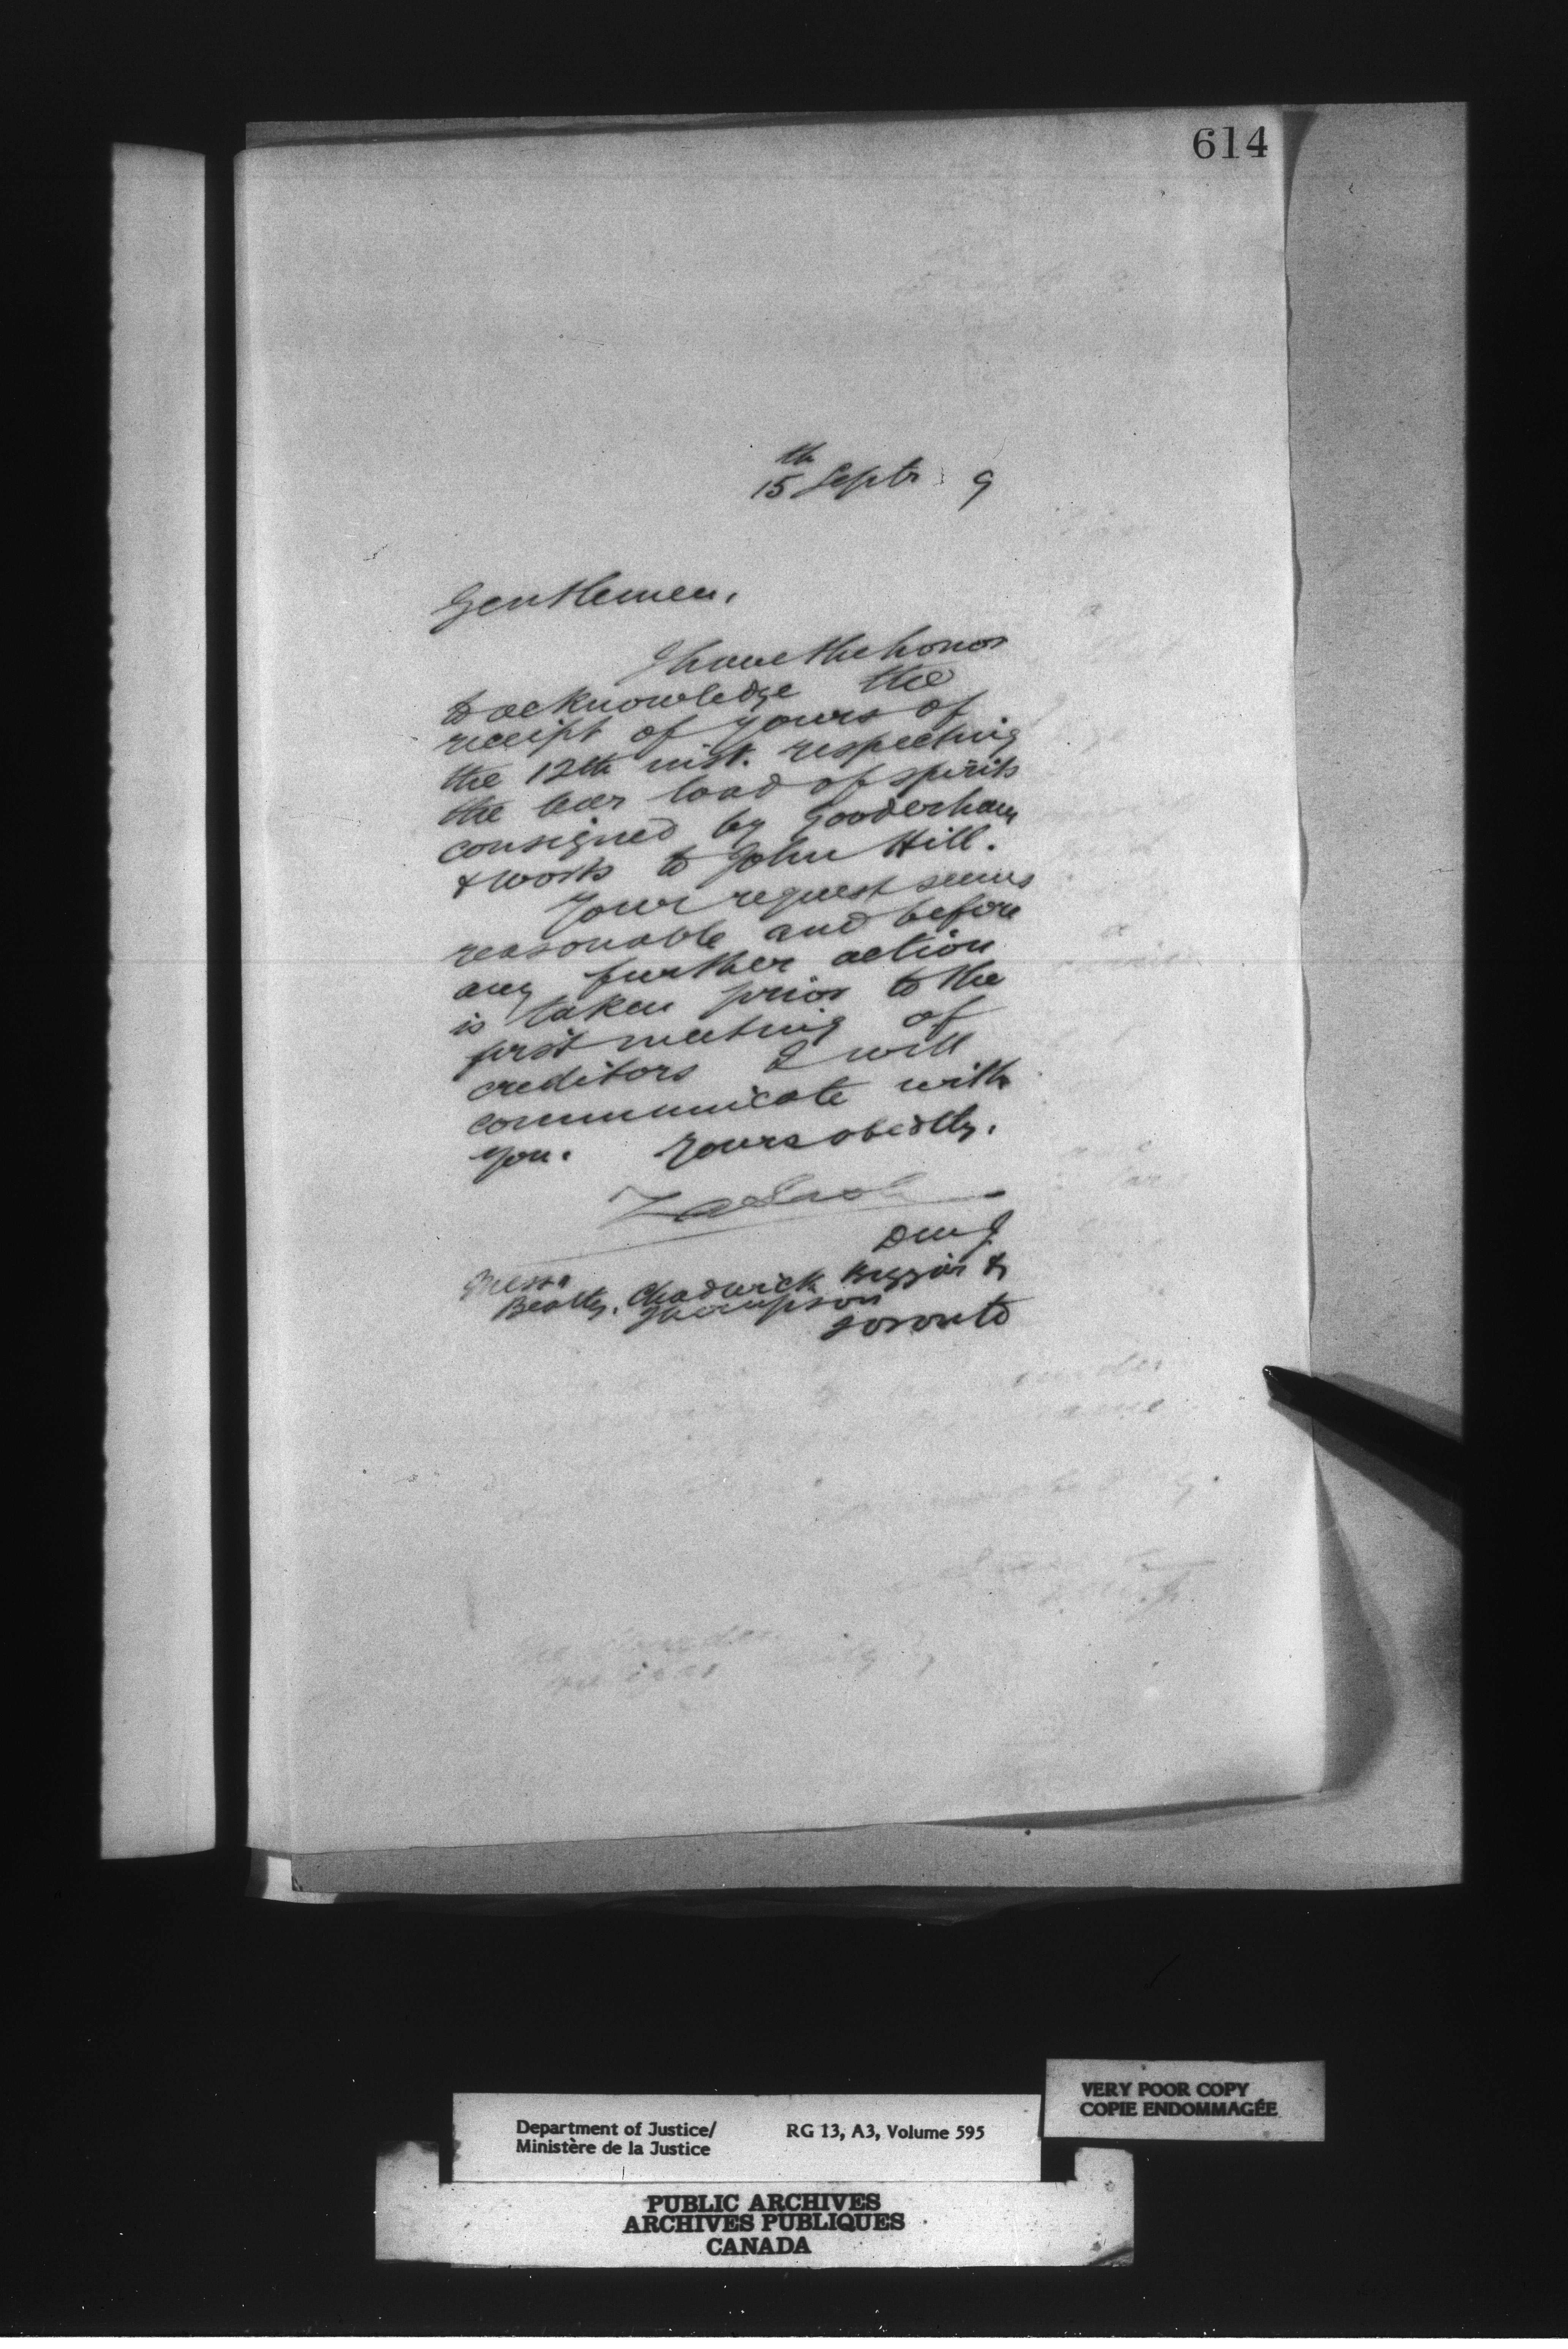 614
15th Septr 9
Gentlemen,
I have the honor
to acknowledge the
receipt of yours of
the 12th inst. respecting
the car load of spirits
consigned by Gooderham
& Worts to John Hill.
Your request seems
reasonable and before
any further action
is taken prior to the
first meeting of
creditors I will
communicate with
you. Yours obedtly.
ZALash
DMJ
Messrs
Beatty, Chadwick Biggar &
Thompson
Toronto
Department of Justice/ RG 13, A3, Volume 595
Ministère de la Justice
VERY POOR COPY
COPIE ENDOMMAGÉE
PUBLIC ARCHIVES
ARCHIVES PUBLIQUES
CANADA